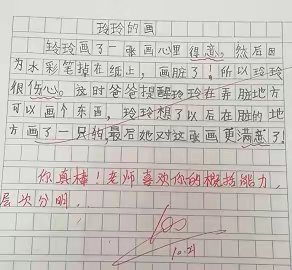 玲玲的画
玲玲画了一张画心里得意。然后因
为水彩笔掉在纸上，画脏了！所以玲玲
很伤心。这时爸爸提醒玲玲在弄脏地方
可以画个东西，玲玲想了以后在脏的地
方画了一只狗，最后她对这张画更满意了！
你真棒！老师喜欢你的概括能力，
层次分明．
100
10.21